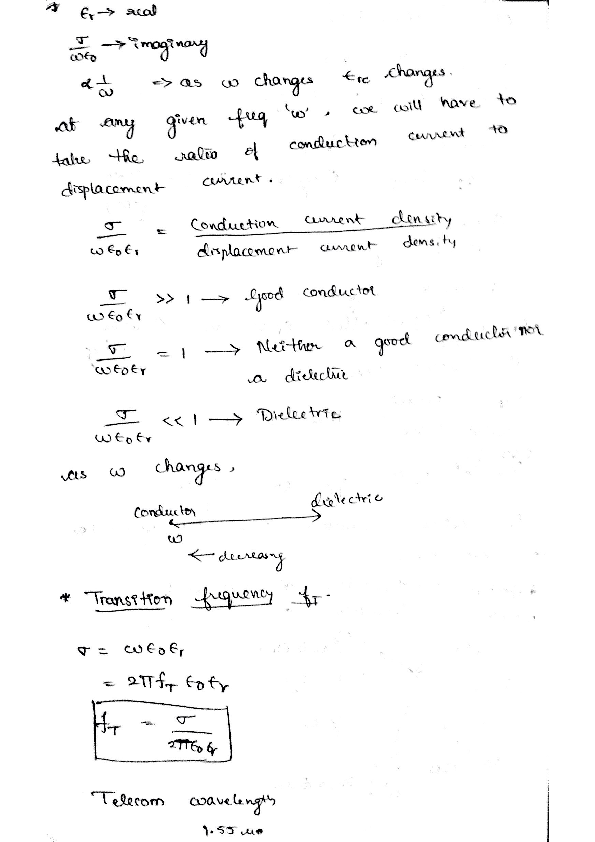 * εr → real
σ/ωε0 → imaginary
α 1/ω => as ω changes εrc changes.
at any given freq 'ω', we will have to
take the ratio of conduction current to
displacement current.
σ/ωε0εr = Conduction current density / displacement current density
σ/ωε0εr >> 1 → Good conductor
σ/ωε0εr = 1 → Neither a good conductor nor
a dielectric
σ/ωε0εr << 1 → Dielectric
as ω changes,
Conductor dielectric
ω
← decreasing
* Transition frequency fT.
σ = ωε0εr
= 2πfT ε0εr
fT = σ/2πε0εr
Telecom wavelength
1.55 um